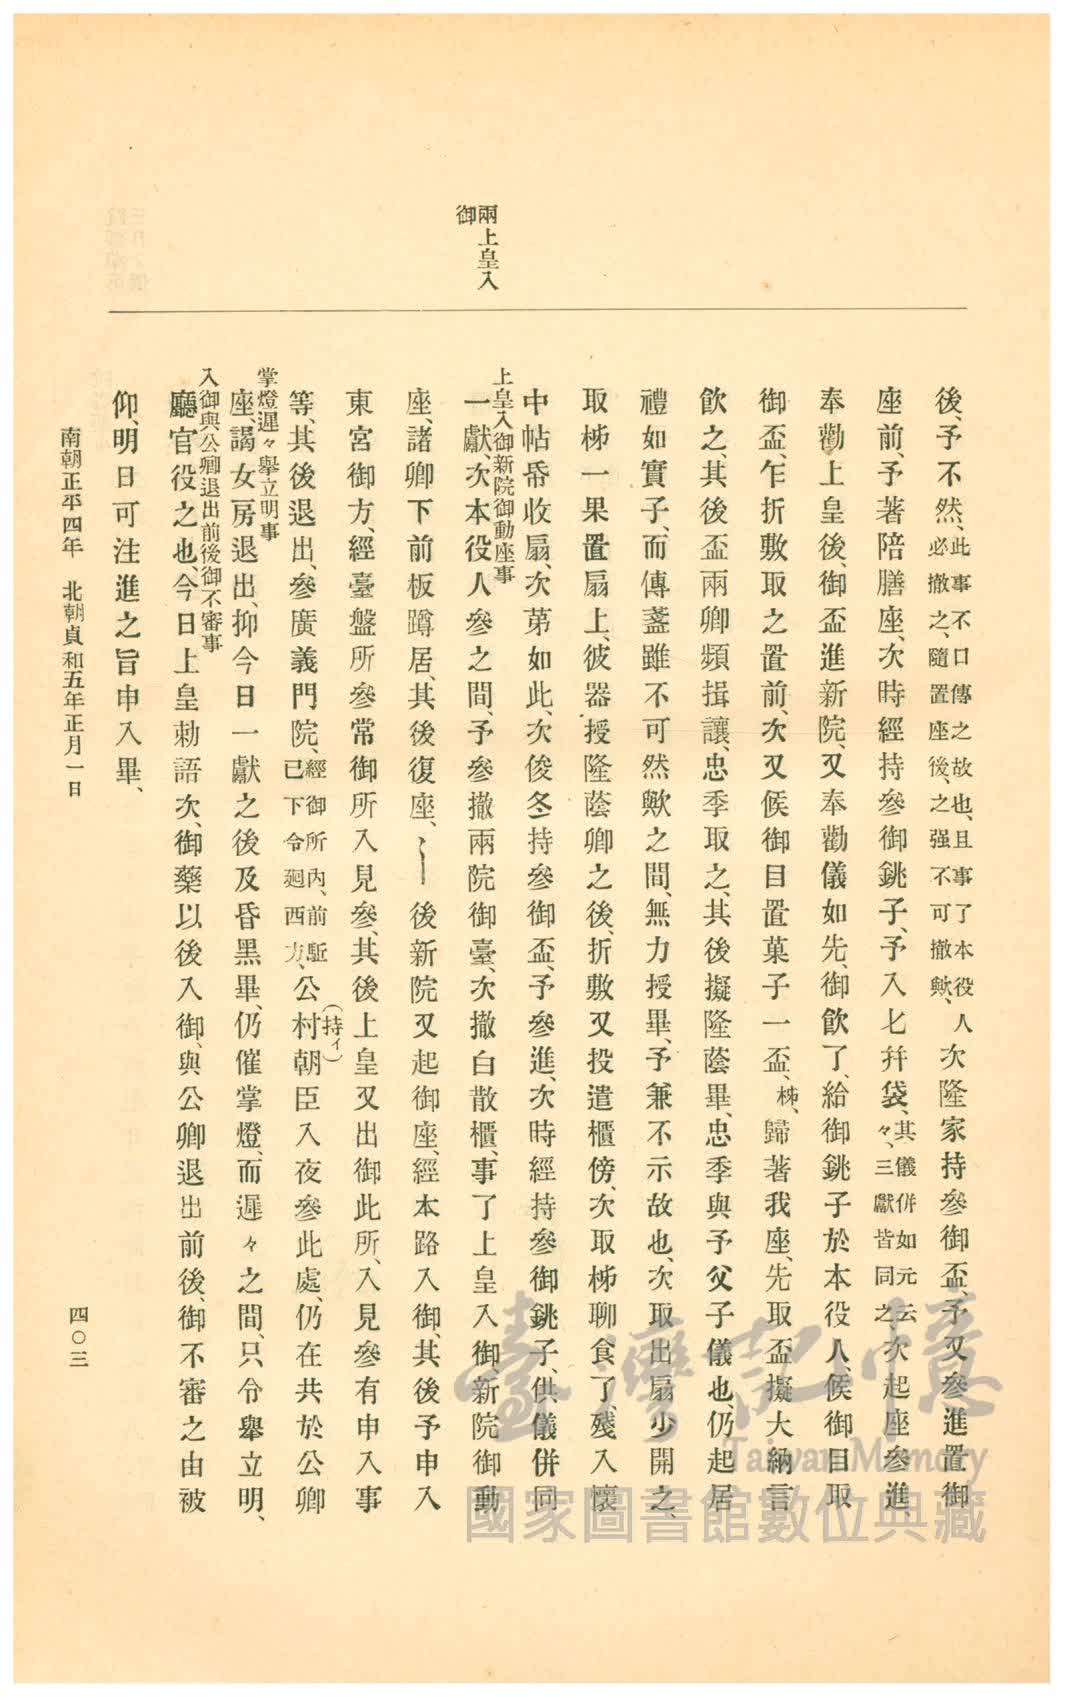 兩上皇入
御
後、予不然、此事不口傳之故也、且事了本役人
必撤之、隨置座後、之强不可撤歟、次隆家持參御盃、予又參進置御
座前、予著陪膳座、次時經持參御銚子、予入匕幷袋、其儀併如元云々、三獻皆同之、次起座參進、
奉勸上皇後、御盃進新院、又奉勸儀如先、御飮了、給御銚子於本役人、候御目取
御盃、乍折敷取之置前、次又候御目置菓子一盃、柹、歸著我座、先取盃擬大納言
飮之、其後盃兩卿頻揖讓、忠季取之、其後擬隆蔭畢、忠季與予父子儀也、仍起居
禮如實子、而傳盞雖不可然歟之間、無力授畢、予兼不示故也、次取出扇少開之、
取柹一果置扇上、彼器授隆蔭卿之後、折敷又投遣櫃傍、次取柹聊食了、殘入懷
中帖帋收扇、次第如此、次俊冬持參御盃、予參進、次時經持參御銚子、供儀併同
上皇入御新院御動座事
一獻、次本役人參之間、予參撤兩院御臺、次撤白散櫃、事了上皇入御、新院御動
座、諸卿下前板蹲居、其後復座、〳〵―後新院又起御座、經本路入御、其後予申入
東宮御方、經臺盤所參常御所入見參、其後上皇又出御此所、入見參有申入事
等、其後退出、參廣義門院、經御所內、前駈
已下令廻西方、公村(持イ)朝臣入夜參此處、仍在共於公卿
掌燈遲々擧立明事
座、謁女房退出、抑今日一獻之後及昏黑畢、仍催掌燈、而遲々之間、只令擧立明、
入御與公卿退出前後御不審事
廳官役之也、今日上皇勅語次、御藥以後入御、與公卿退出前後、御不審之由被
仰、明日可注進之旨申入畢、
南朝正平四年　北朝貞和五年正月一日
四〇三
臺灣記憶
Taiwan Memory
國家圖書館數位典藏